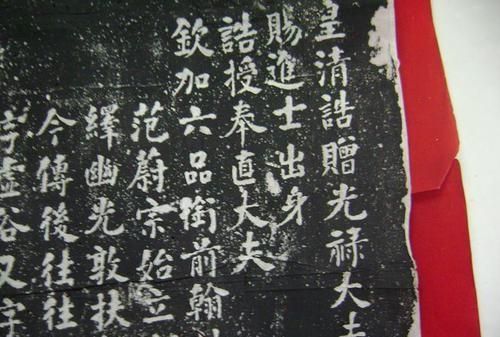 皇清誥贈光祿大夫
賜進士出身
誥授奉直大夫
欽加六品銜前翰
范蔚宗始立
繹幽光敢扶
今傳後往往
字虛谷又字